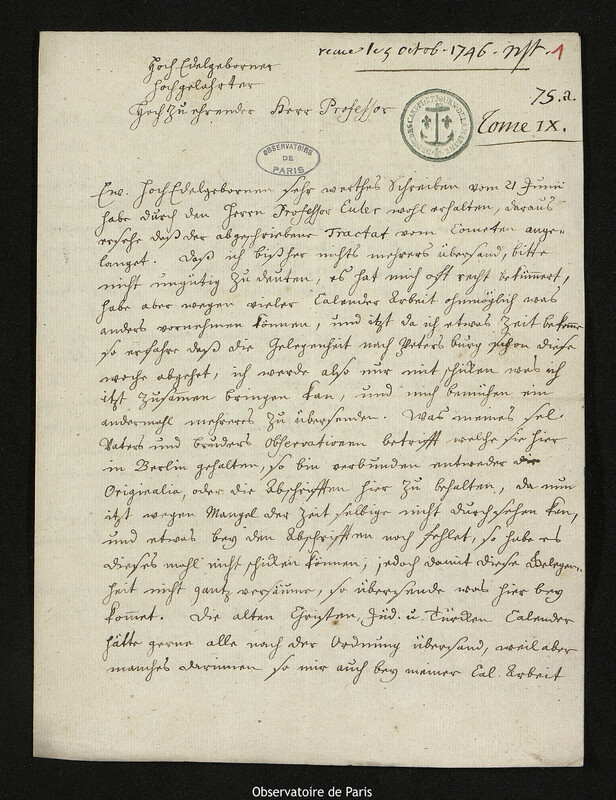 receu le 5 octob. 1746. nst. 1
Hoch Edelgeborner
Hochgelahrter
Hoch zu ehrender Herr Professor
75.a.
Tome IX.
OBSERVATOIRE
DE
PARIS
Ew. HochEdelgebornen sehr werthes Schreiben vom 21 Junii
habe durch den Herrn Professor Euler wohl erhalten, daraus
ersehe daß der abgeschriebene Tractat vom Cometen ange-
langet. Daß ich bißher nichts mehrers übersend, bitte
nicht ungütig zu deuten, es hat mich oft recht bekümmert,
habe aber wegen vieler Calender Arbeit ohnmöglich was
anders vornehmen können, und itzt da ich etwas Zeit bekomme
so erfahre daß die Gelegenheit nach Petersburg schon diese
woche abgehet, ich werde also nur mit schicken was ich
itzt zusamen bringen kan, und mich bemühen ein
andermahl mehreres zu übersenden. Was meines sel.
Vaters und Bruders Observationen betrifft welche sie hier
in Berlin gehalten, so bin verbunden entweder die
Originalia, oder die Abschrifften hier zu behalten, da nun
itzt wegen Mangel der Zeit selbige nicht durchsehen kan,
und etwas bey den Abschrifften noch fehlet, so habe es
dieses mahl nicht schicken können; jedoch damit diese Gelegen-
heit nicht gantz versäume, so übersende was hier bey
kommet. Die alten Christen, Jüd. u. Türcken Calender
hätte gerne alle nach der Ordnung übersand, weil aber
manches darinnen so mir auch bey meiner Cal. Arbeit
Observatoire de Paris